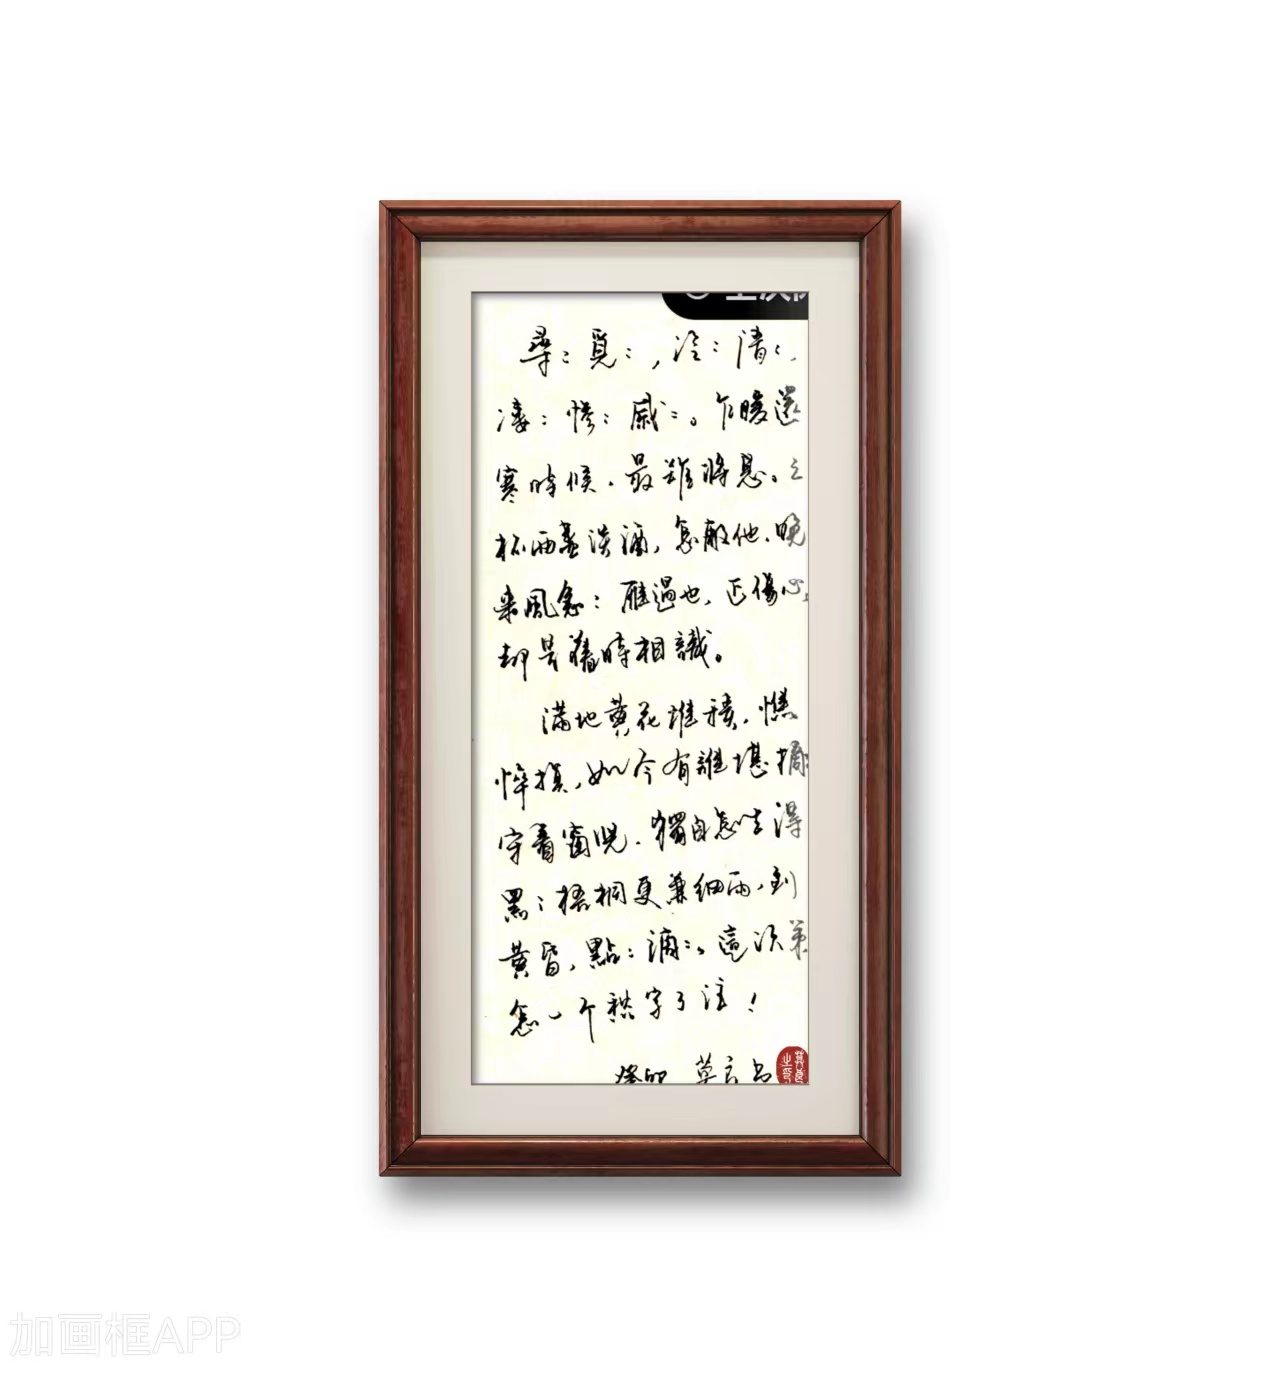 尋：覓：，冷：清：，
凄：慘：戚：。乍暖還
寒時候，最難將息。三
杯兩盞淡酒，怎敵他，晚
来風急：雁過也，正傷心，
却是舊時相識。
滿地黄花堆積，憔
悴損，如今有誰堪摘
守着窗児，獨自怎生得
黑：梧桐更兼細雨，到
黄昏，點：滴：。這次第
怎一个愁字了注！
癸卯 莫言书
加画框APP